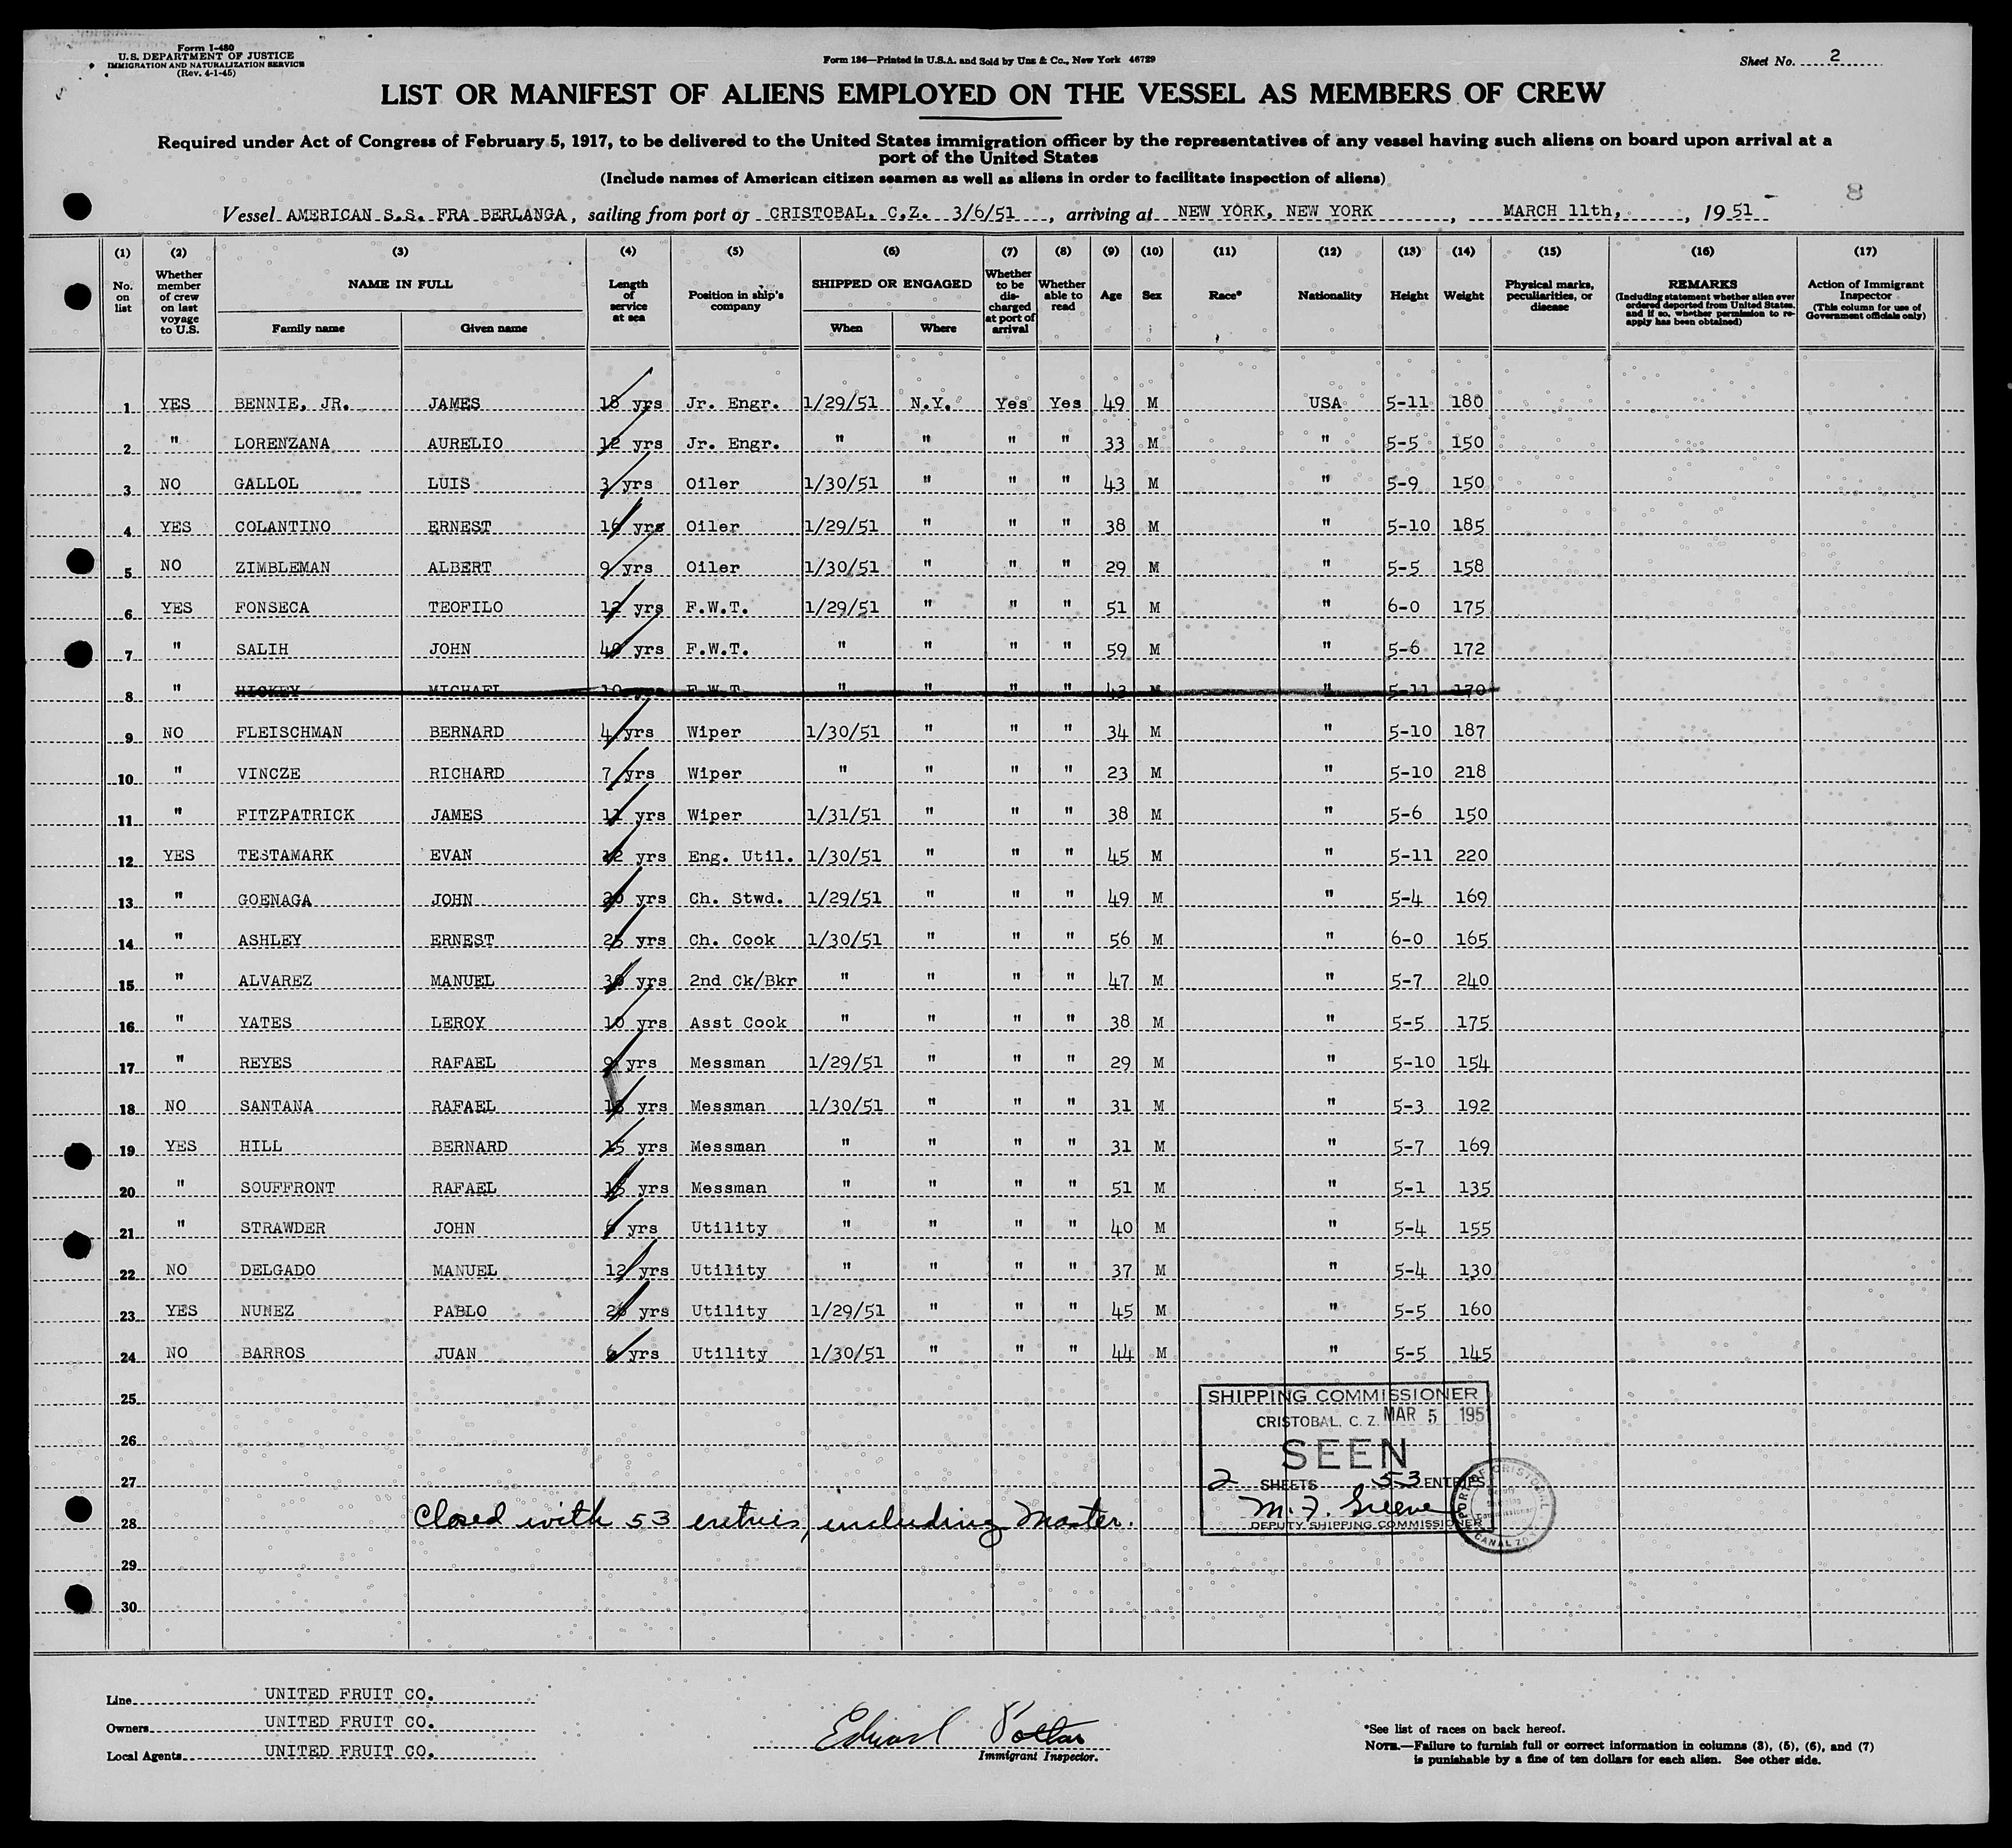 Form I-480
U.S. DEPARTMENT OF JUSTICE
IMMIGRATION AND NATURALIZATION SERVICE
(Rev. 4-1-45)
Form 136—Printed in U.S.A. and Sold by Unz & Co., New York 46729
Sheet No. 2
LIST OR MANIFEST OF ALIENS EMPLOYED ON THE VESSEL AS MEMBERS OF CREW
Required under Act of Congress of February 5, 1917, to be delivered to the United States immigration officer by the representatives of any vessel having such aliens on board upon arrival at a
port of the United States
(Include names of American citizen seamen as well as aliens in order to facilitate inspection of aliens)
8
Vessel AMERICAN S.S. FRA BERLANGA, sailing from port of CRISTOBAL, C.Z. 3/6/51, arriving at NEW YORK, NEW YORK, MARCH 11th, 1951
(1) No. on list
(2) Whether member of crew on last voyage to U.S.
(3) NAME IN FULL Family name Given name
(4) Length of service at sea
(5) Position in ship's company
(6) SHIPPED OR ENGAGED When Where
(7) Whether to be discharged at port of arrival
(8) Whether able to read
(9) Age
(10) Sex
(11) Race*
(12) Nationality
(13) Height
(14) Weight
(15) Physical marks, peculiarities, or disease
(16) REMARKS (Including statement whether alien ever ordered deported from United States, and if so, whether permission to re-apply has been obtained)
(17) Action of Immigrant Inspector (This column for use of Government officials only)
1 YES BENNIE, JR. JAMES 18 yrs Jr. Engr. 1/29/51 N.Y. Yes Yes 49 M USA 5-11 180
2 " LORENZANA AURELIO 12 yrs Jr. Engr. " " " " 33 M " 5-5 150
3 NO GALLOL LUIS 3 yrs Oiler 1/30/51 " " " 43 M " 5-9 150
4 YES COLANTINO ERNEST 16 yrs Oiler 1/29/51 " " " 38 M " 5-10 185
5 NO ZIMBLEMAN ALBERT 9 yrs Oiler 1/30/51 " " " 29 M " 5-5 158
6 YES FONSECA TEOFILO 12 yrs F.W.T. 1/29/51 " " " 51 M " 6-0 175
7 " SALIH JOHN 40 yrs F.W.T. " " " " 59 M " 5-6 172
8 " HICKEY MICHAEL 10 yrs F.W.T. " " " " 43 M " 5-11 170
9 NO FLEISCHMAN BERNARD 4 yrs Wiper 1/30/51 " " " 34 M " 5-10 187
10 " VINCZE RICHARD 7 yrs Wiper " " " " 23 M " 5-10 218
11 " FITZPATRICK JAMES 11 yrs Wiper 1/31/51 " " " 38 M " 5-6 150
12 YES TESTAMARK EVAN 12 yrs Eng. Util. 1/30/51 " " " 45 M " 5-11 220
13 " GOENAGA JOHN 20 yrs Ch. Stwd. 1/29/51 " " " 49 M " 5-4 169
14 " ASHLEY ERNEST 25 yrs Ch. Cook 1/30/51 " " " 56 M " 6-0 165
15 " ALVAREZ MANUEL 30 yrs 2nd Ck/Bkr " " " " 47 M " 5-7 240
16 " YATES LEROY 10 yrs Asst Cook " " " " 38 M " 5-5 175
17 " REYES RAFAEL 9 yrs Messman 1/29/51 " " " 29 M " 5-10 154
18 NO SANTANA RAFAEL yrs Messman 1/30/51 " " " 31 M " 5-3 192
19 YES HILL BERNARD 15 yrs Messman " " " " 31 M " 5-7 169
20 " SOUFFRONT RAFAEL yrs Messman " " " " 51 M " 5-1 135
21 " STRAWDER JOHN 6 yrs Utility " " " " 40 M " 5-4 155
22 NO DELGADO MANUEL 12 yrs Utility " " " " 37 M " 5-4 130
23 YES NUNEZ PABLO yrs Utility 1/29/51 " " " 45 M " 5-5 160
24 NO BARROS JUAN 6 yrs Utility 1/30/51 " " " 44 M " 5-5 145
25
26
27
28 Closed with 53 entries, including Master.
29
30
SHIPPING COMMISSIONER
CRISTOBAL, C. Z. MAR 5 195
SEEN
2 SHEETS 53 ENTRIES
M. F. Greene
DEPUTY SHIPPING COMMISSIONER
PORT OF CRISTOBAL
CANAL ZO
Line UNITED FRUIT CO.
Owners UNITED FRUIT CO.
Local Agents UNITED FRUIT CO.
Edward
Immigrant Inspector.
*See list of races on back hereof.
NOTE.—Failure to furnish full or correct information in columns (3), (5), (6), and (7)
is punishable by a fine of ten dollars for each alien. See other side.